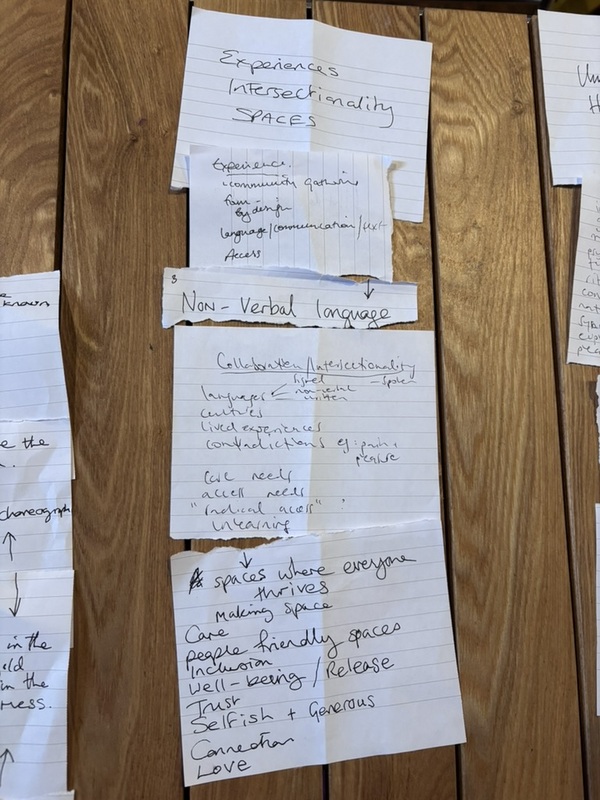 Experiences
Intersectionality
SPACES
Experience.
community gathering
form
by design
language/communication/text
Access
3
Non-Verbal language
Collaboration/Intersectionality
signed - spoken
languages non-verbal
written
cultures
lived experiences
contradictions eg: pain +
pleasure
care needs
access needs
"radical access" :
unlearning
spaces where everyone
thrives
Making space
Care
people friendly spaces
Inclusion
Well-being / Release
Trust
Selfish + Generous
Connection
Love
known
e the
choreograph
in the
in the